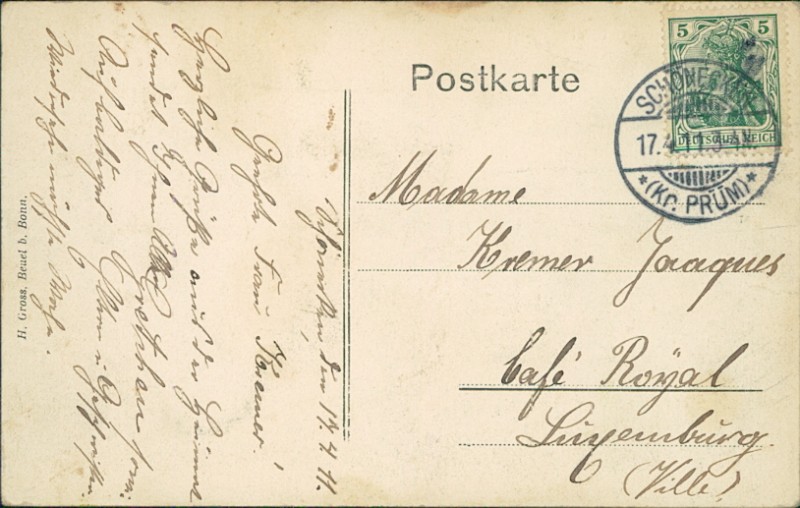 Postkarte
5 5
DEUTSCHES REICH
SCHÖNECKEN
17.4.11
*(Kr. PRÜM)*
Madame
Kremer Jaaques
Café Royal
Luxemburg
(Ville)
Schönecken den 17.4.11.
Geehrte Frau Kremer!
Herzliche Grüße aus der Heimat
sendet Ihnen Gretchen sowie
Eltern u. Geschwister.
Auf baldiges
Wiedersehn nächste Woche.
H. Gross, Beuel b. Bonn.